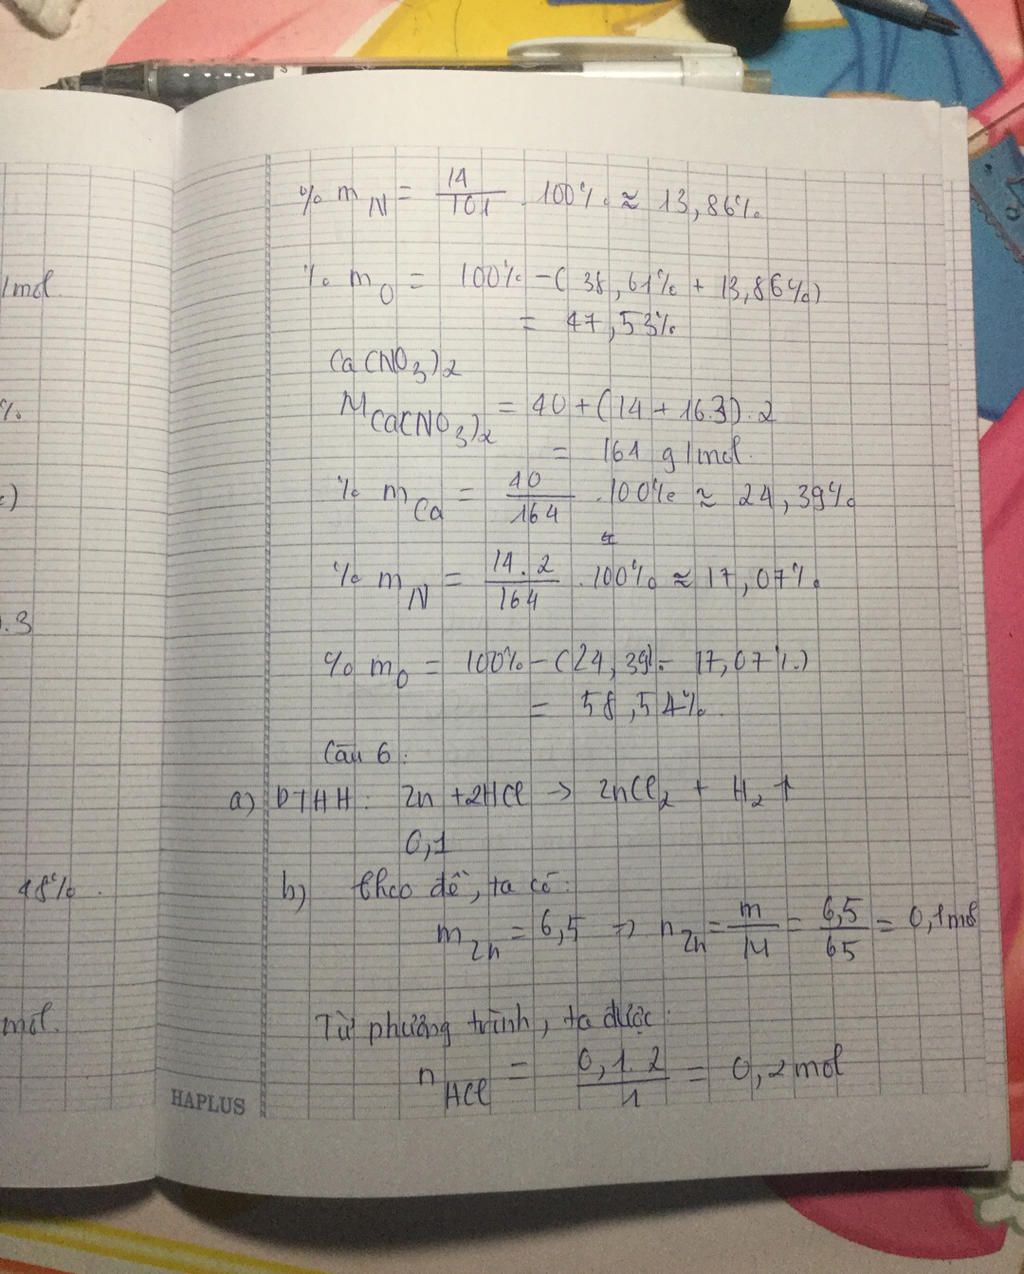 /mol
%
c)
0.3
48%.
mol.
% m N = 14/101 . 100% ≈ 13,86%
% m O = 100% - (38,61% + 13,86%)
= 47,53%
Ca(NO3)2
M Ca(NO3)2 = 40 + (14 + 16.3).2
= 164 g/mol
% m Ca = 40/164 . 100% ≈ 24,39%
% m N = 14.2/164 . 100% ≈ 17,07%
% m O = 100% - (24,39% - 17,07%)
= 58,54%.
Câu 6:
a) PTHH: Zn + 2HCl → ZnCl2 + H2 ↑
0,1
b) theo đề, ta có:
m Zn = 6,5 => n Zn = m/M = 6,5/65 = 0,1 mol
Từ phương trình, ta được:
n HCl = 0,1.2/1 = 0,2 mol
HAPLUS